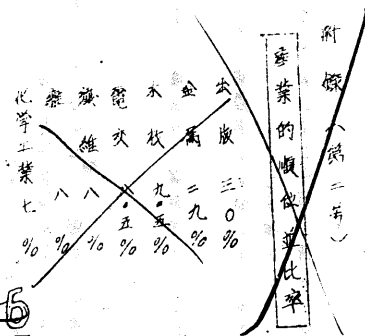 附錄(第二号)
産業的順位並比率
出版 三〇%
金属 二九%
木材 九.五%
電気 八.五%
繊維 八%
雑 八%
化学工業 七%
5